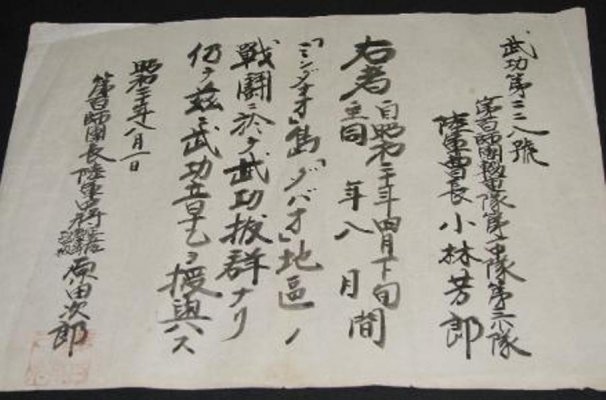 武功第三二八號
第百師團 隊第 中隊第三小隊
陸軍曹長 小林芳郎
右者 自昭和二十年四月下旬
至同 年八 月間
「ミンダナオ」島「ダバオ」地區ノ
戰鬪ニ於テ武功抜群ナリ
仍テ茲ニ武功章乙ヲ授與ス
昭和二十年八月一日
第百師團長陸軍中將 原田次郎